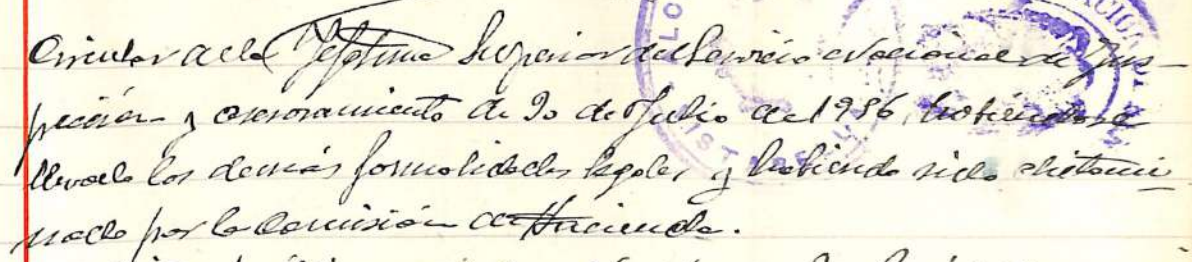 Circular de la Jefatura Superior del Servicio Nacional de Ins-
pección y asesoramiento de 30 de Julio de 1986, habiendose
llevado los demás formalidades legales y habiendo sido dictami
nado por la Comisión de Hacienda.